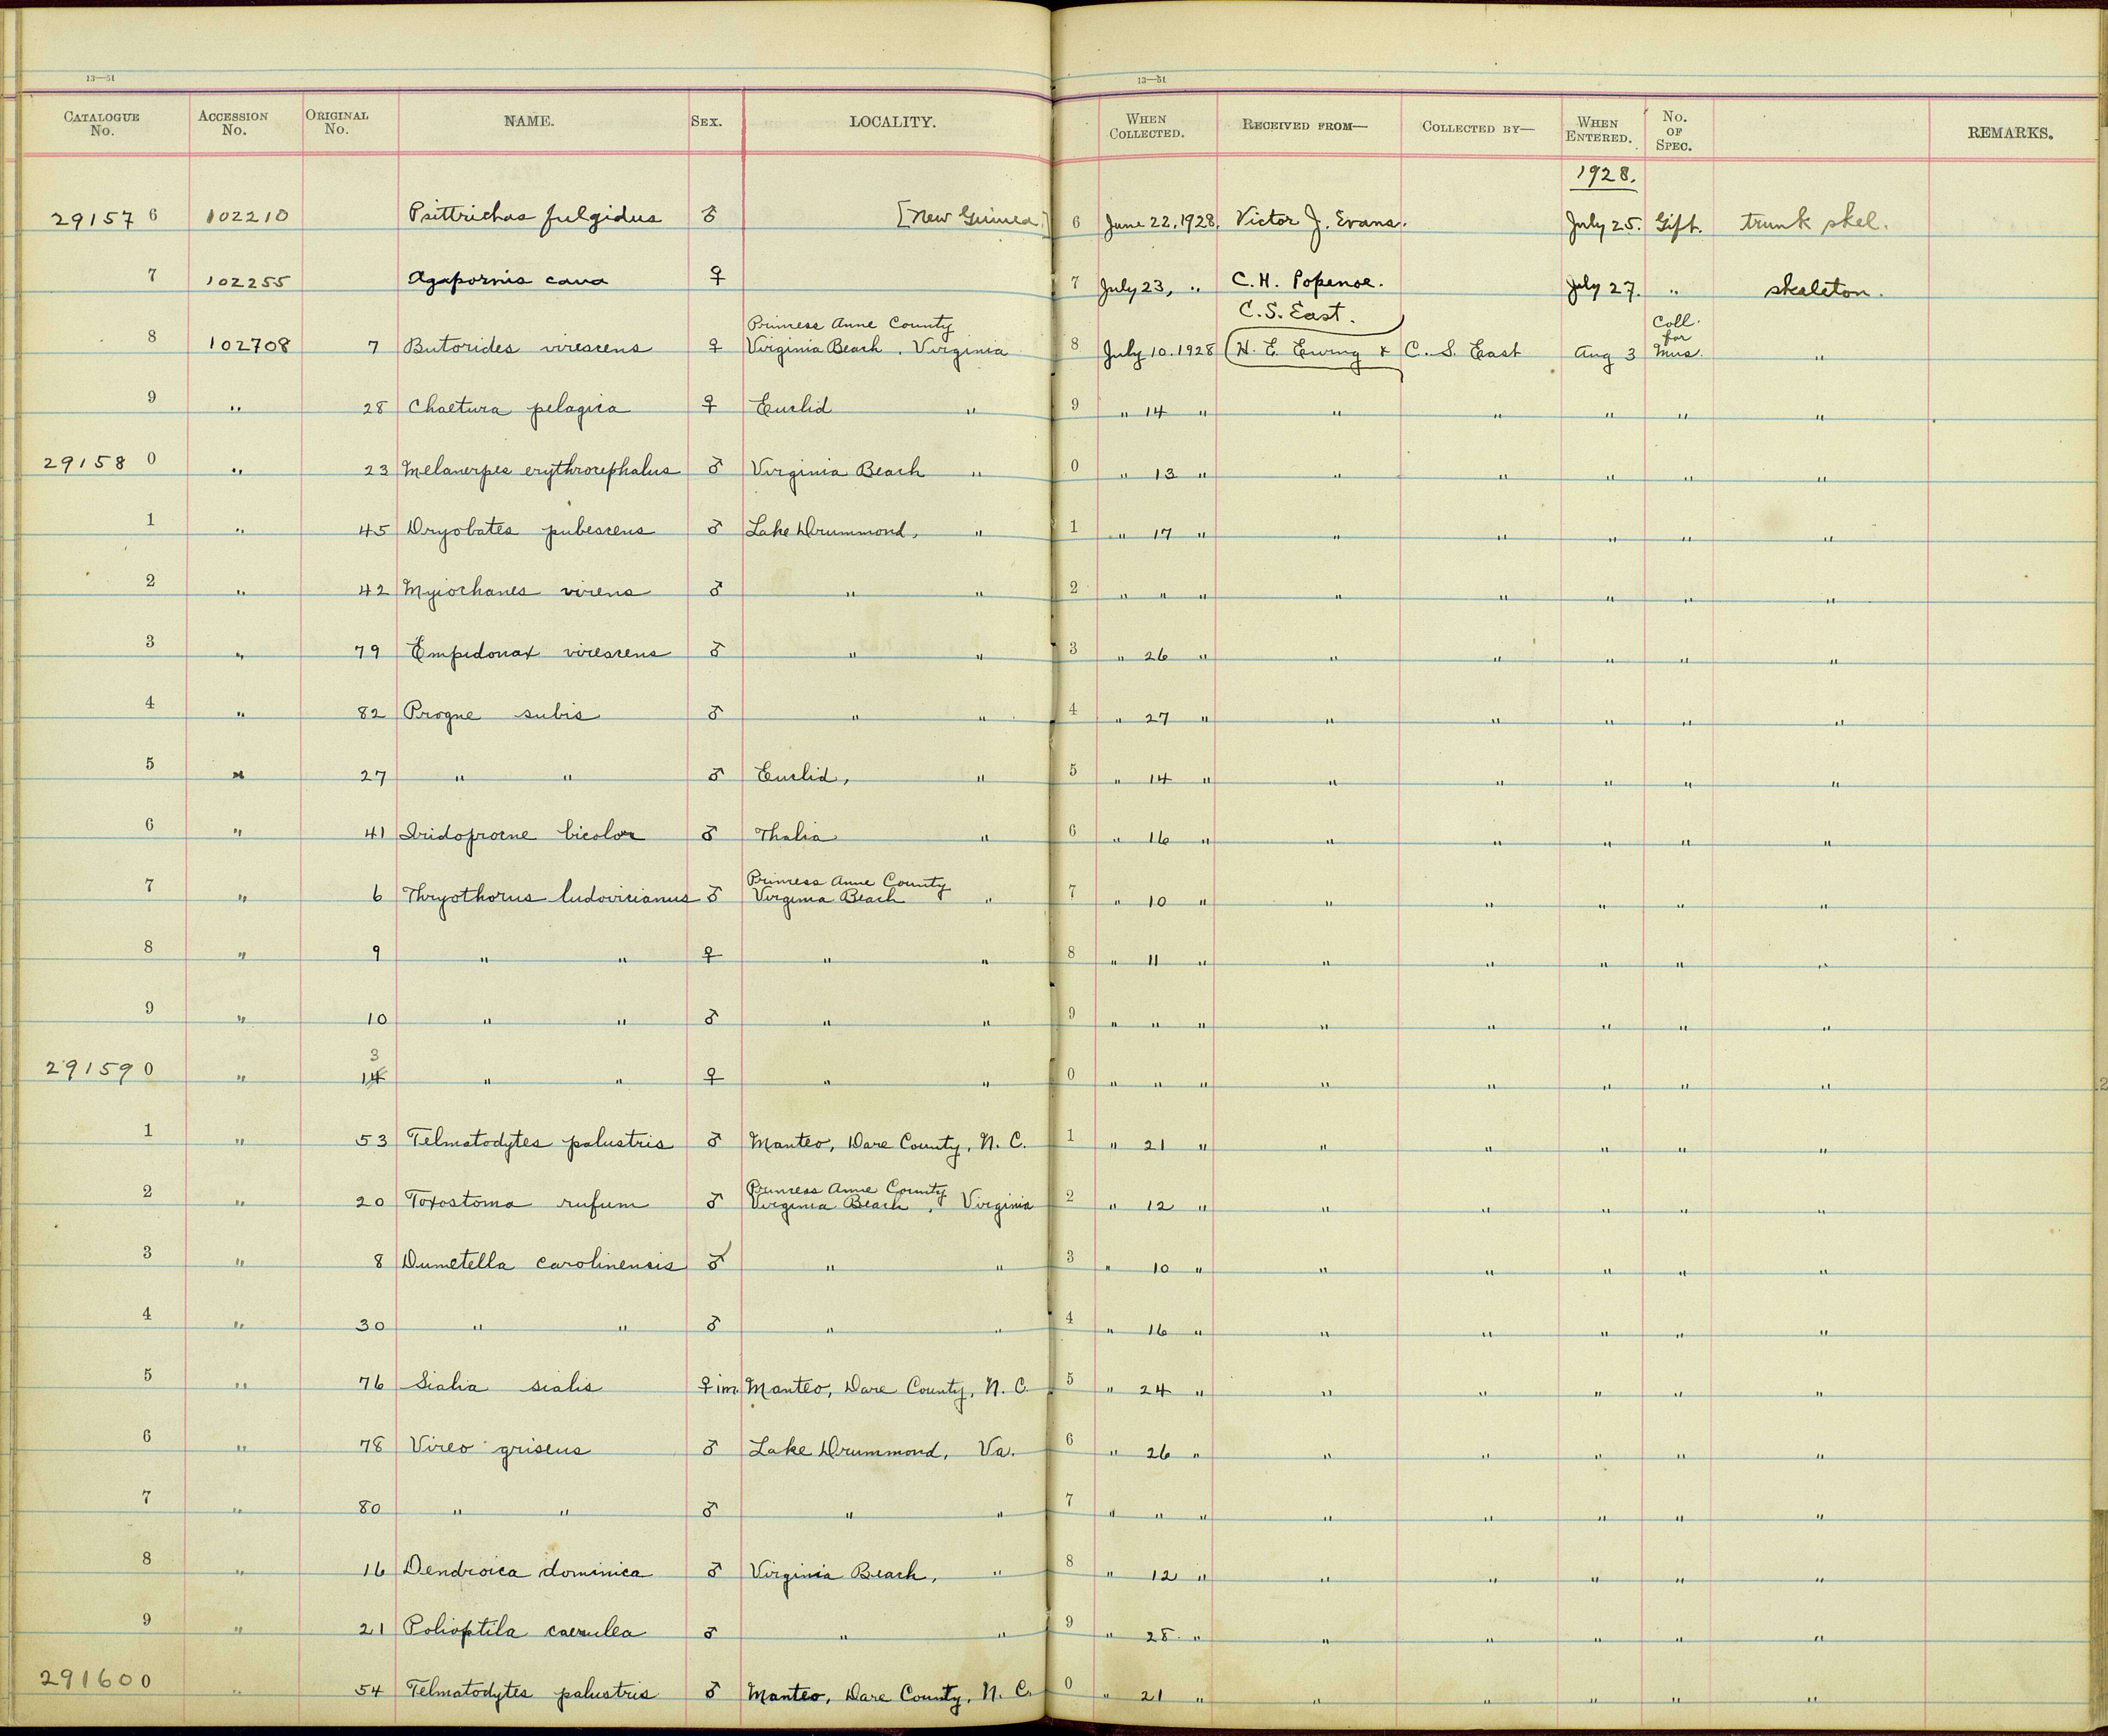 13—51 13—51
CATALOGUE No. ACCESSION No. ORIGINAL No. NAME. SEX. LOCALITY. WHEN COLLECTED. RECEIVED FROM— COLLECTED BY— WHEN ENTERED. No. OF SPEC. REMARKS.
1928.
29157 6 102210 Psittrichas fulgidus ♂ [New Guinea] 6 June 22, 1928. Victor J. Evans. July 25. Gift. trunk skel.
7 102255 Agapornis cana ♀ 7 July 23, " C. H. Popenoe. July 27. " skeleton.
C. S. East.
Princess Anne County Coll. for
8 102708 7 Butorides virescens ♀ Virginia Beach, Virginia 8 July 10. 1928 (H. E. Ewing & C. S. East Aug 3 Mus. "
9 " 28 Chaetura pelagica ♀ Euclid " 9 " 14 " " " " " "
29158 0 " 23 Melanerpes erythrocephalus ♂ Virginia Beach " 0 " 13 " " " " " "
1 " 45 Dryobates pubescens ♂ Lake Drummond, " 1 " 17 " " " " " "
2 " 42 Myiochanes virens ♂ " " 2 " " " " " " " "
3 " 79 Empidonax virescens ♂ " " 3 " 26 " " " " " "
4 " 82 Progne subis ♂ " " 4 " 27 " " " " " "
5 " 27 " " ♂ Euclid, " 5 " 14 " " " " " "
6 " 41 Iridoprocne bicolor ♂ Thalia " 6 " 16 " " " " " "
Princess Anne County
7 " 6 Thryothorus ludovicianus ♂ Virginia Beach " 7 " 10 " " " " " "
8 " 9 " " ♀ " " 8 " 11 " " " " " "
9 " 10 " " ♂ " " 9 " " " " " " " "
3
29159 0 " 14 " " ♀ " " 0 " " " " " " " "
1 " 53 Telmatodytes palustris ♂ Manteo, Dare County, N. C. 1 " 21 " " " " " "
Princess Anne County
2 " 20 Toxostoma rufum ♂ Virginia Beach, Virginia 2 " 12 " " " " " "
3 " 8 Dumetella carolinensis ♂ " " 3 " 10 " " " " " "
4 " 30 " " ♂ " " 4 " 16 " " " " " "
5 " 76 Sialia sialis ♀ im. Manteo, Dare County, N. C. 5 " 24 " " " " " "
6 " 78 Vireo griseus ♂ Lake Drummond, Va. 6 " 26 " " " " " "
7 " 80 " " ♂ " " 7 " " " " " " " "
8 " 16 Dendroica dominica ♂ Virginia Beach, " 8 " 12 " " " " " "
9 " 21 Polioptila caerulea ♂ " " 9 " 28 " " " " " "
29160 0 " 54 Telmatodytes palustris ♂ Manteo, Dare County, N. C. 0 " 21 " " " " " "